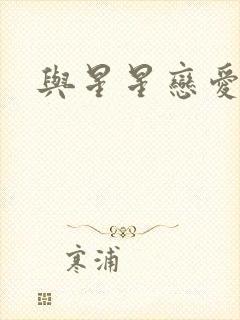 與星星戀愛
寒浦